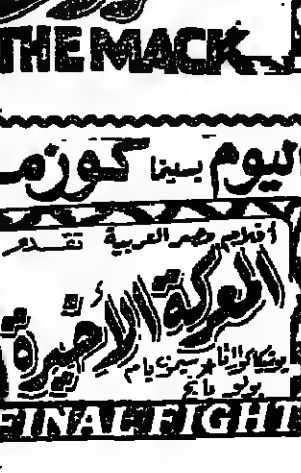 THE MACK
اليوم بسينما كوزمو
أفلام مصر العربية تقدم
المعركة الأخيرة
بولو يانج
FINAL FIGHT